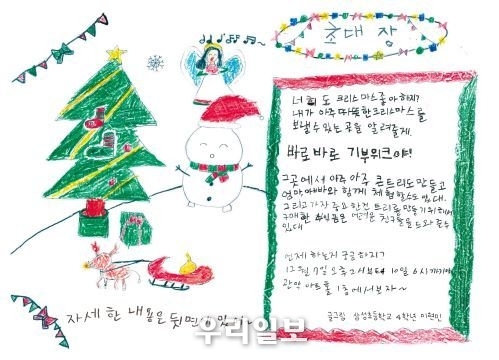 초대장
너희도 크리스마스좋아하지?
내가 아주 따뜻한크리스마스를
보낼수 있는 곳을 알려줄게.
바로바로 기부위크야!
그곳에서 아주 아주 큰트리도 만들고
엄마아빠와 함께 체험할수도 있대.
그리고 가장 중요한건 트리를 만들기위해서
구매한 수익금은 어려운 친구들을 도와 준수
있대
언제 하는지 궁금하지?
12월 7일 오후 2시부터 10일 6시까지야
관악 아트홀 1층에서보자~
글그림 삼성초등학교 4학년 이현민
자세한 내용은 뒷면에 있어~
우리일보